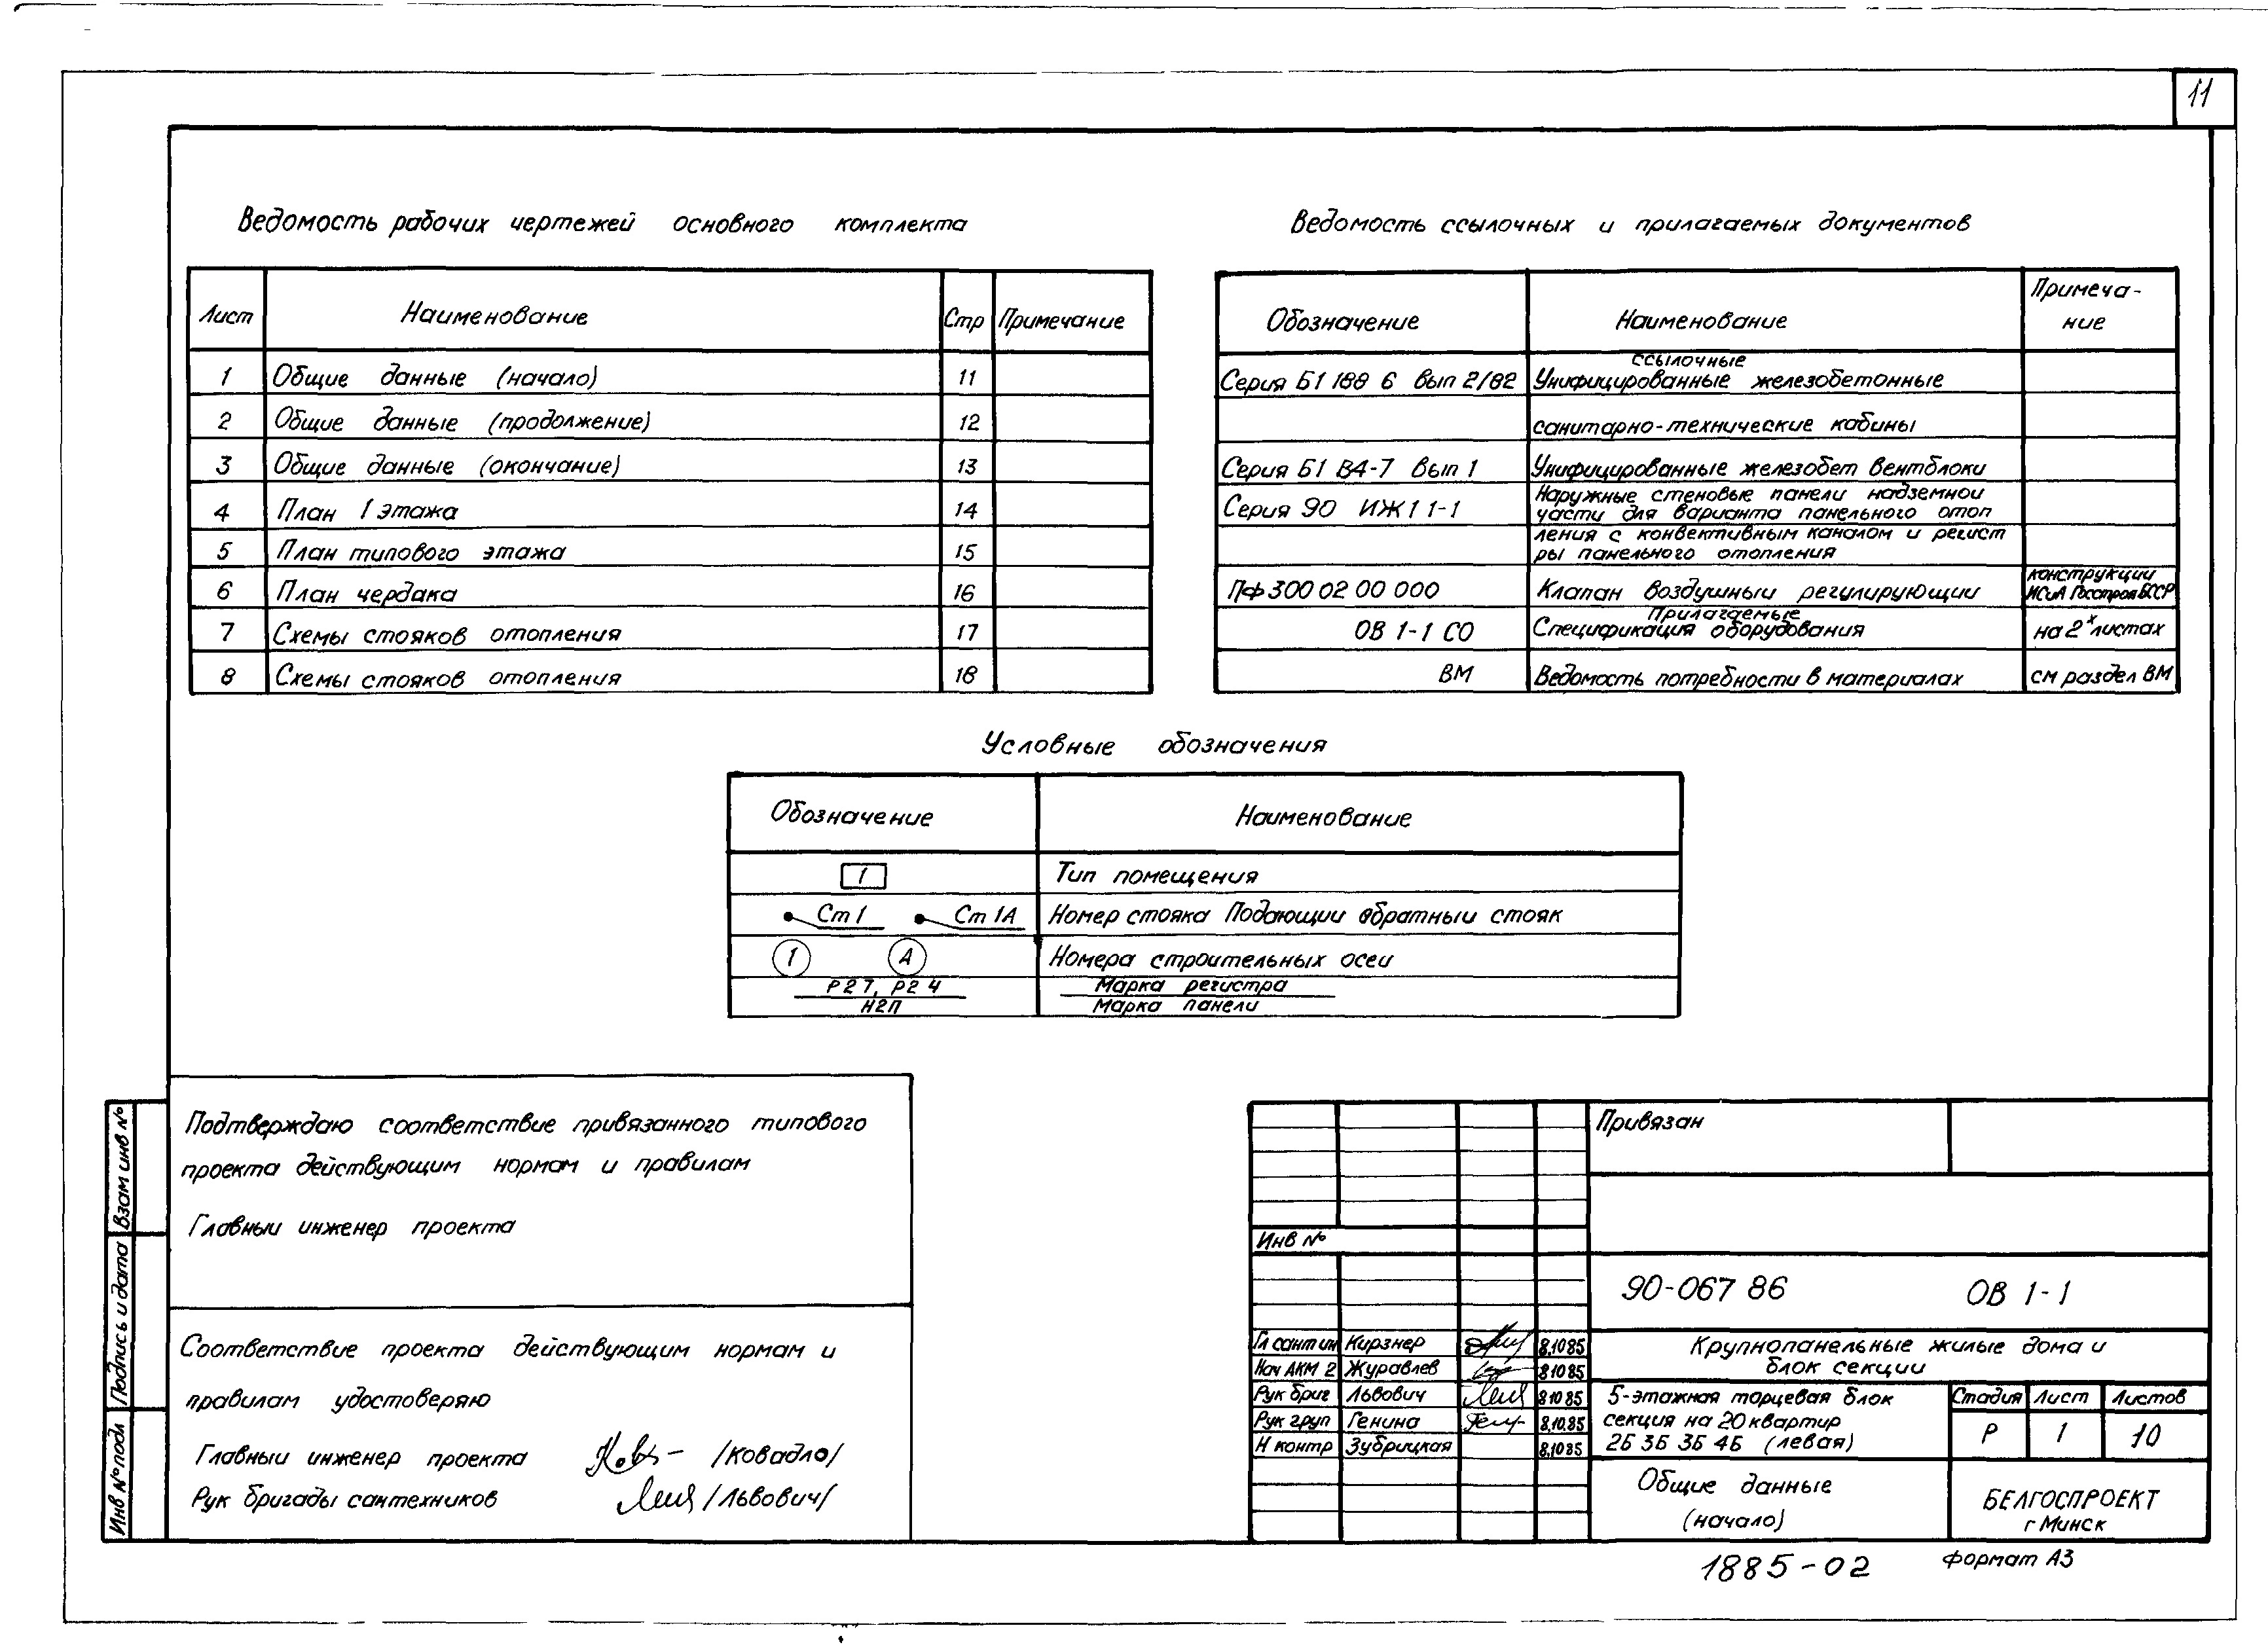 11
Ведомость рабочих чертежей основного комплекта
Лист Наименование Стр Примечание
1 Общие данные (начало) 11
2 Общие данные (продолжение) 12
3 Общие данные (окончание) 13
4 План 1 этажа 14
5 План типового этажа 15
6 План чердака 16
7 Схемы стояков отопления 17
8 Схемы стояков отопления 18
Ведомость ссылочных и прилагаемых документов
Обозначение Наименование Примеча-
ние
ссылочные
Серия Б1 188 6 вып 2/82 Унифицированные железобетонные
санитарно-технические кабины
Серия Б1 В4-7 вып 1 Унифицированные железобет вентблоки
Серия 90 ИЖ 1 1-1 Наружные стеновые панели надземнои
части для варианта панельного отоп
ления с конвективным каналом и регист
ры панельного отопления
ПФ 300 02 00 000 Клапан воздушныи регулирующии конструкции
ИСиА Госстроя БССР
Прилагаемые
ОВ 1-1 СО Спецификация оборудования на 2х листах
ВМ Ведомость потребности в материалах см раздел ВМ
Условные обозначения
Обозначение Наименование
1 Тип помещения
Ст 1 Ст 1А Номер стояка Подающии обратныи стояк
1 А Номера строительных осеи
Р2 7, Р2 4 Марка регистра
Н2П Марка панели
Подтверждаю соответствие привязанного типового
проекта действующим нормам и правилам
Главныи инженер проекта
Соответствие проекта действующим нормам и
правилам удостоверяю
Главныи инженер проекта /Ковадло/
Рук бригады сантехников /Львович/
Взам инв №
Подпись и дата
Инв № подл
Привязан
Инв №
90-067 86 ОВ 1-1
Гл сантип Кирзнер 8.10 85
Нач АКМ 2 Журавлев 8 10 85
Рук бриг Львович 8 10 85
Рук груп Генина 8.10.85
Н контр Зубрицкая 8.10 85
Крупнопанельные жилые дома и
блок секции
5-этажная торцевая блок
секция на 20 квартир
2Б 3Б 3Б 4Б (левая)
Стадия Лист Листов
Р 1 10
Общие данные
(начало)
БЕЛГОСПРОЕКТ
г Минск
1885-02
Формат А3